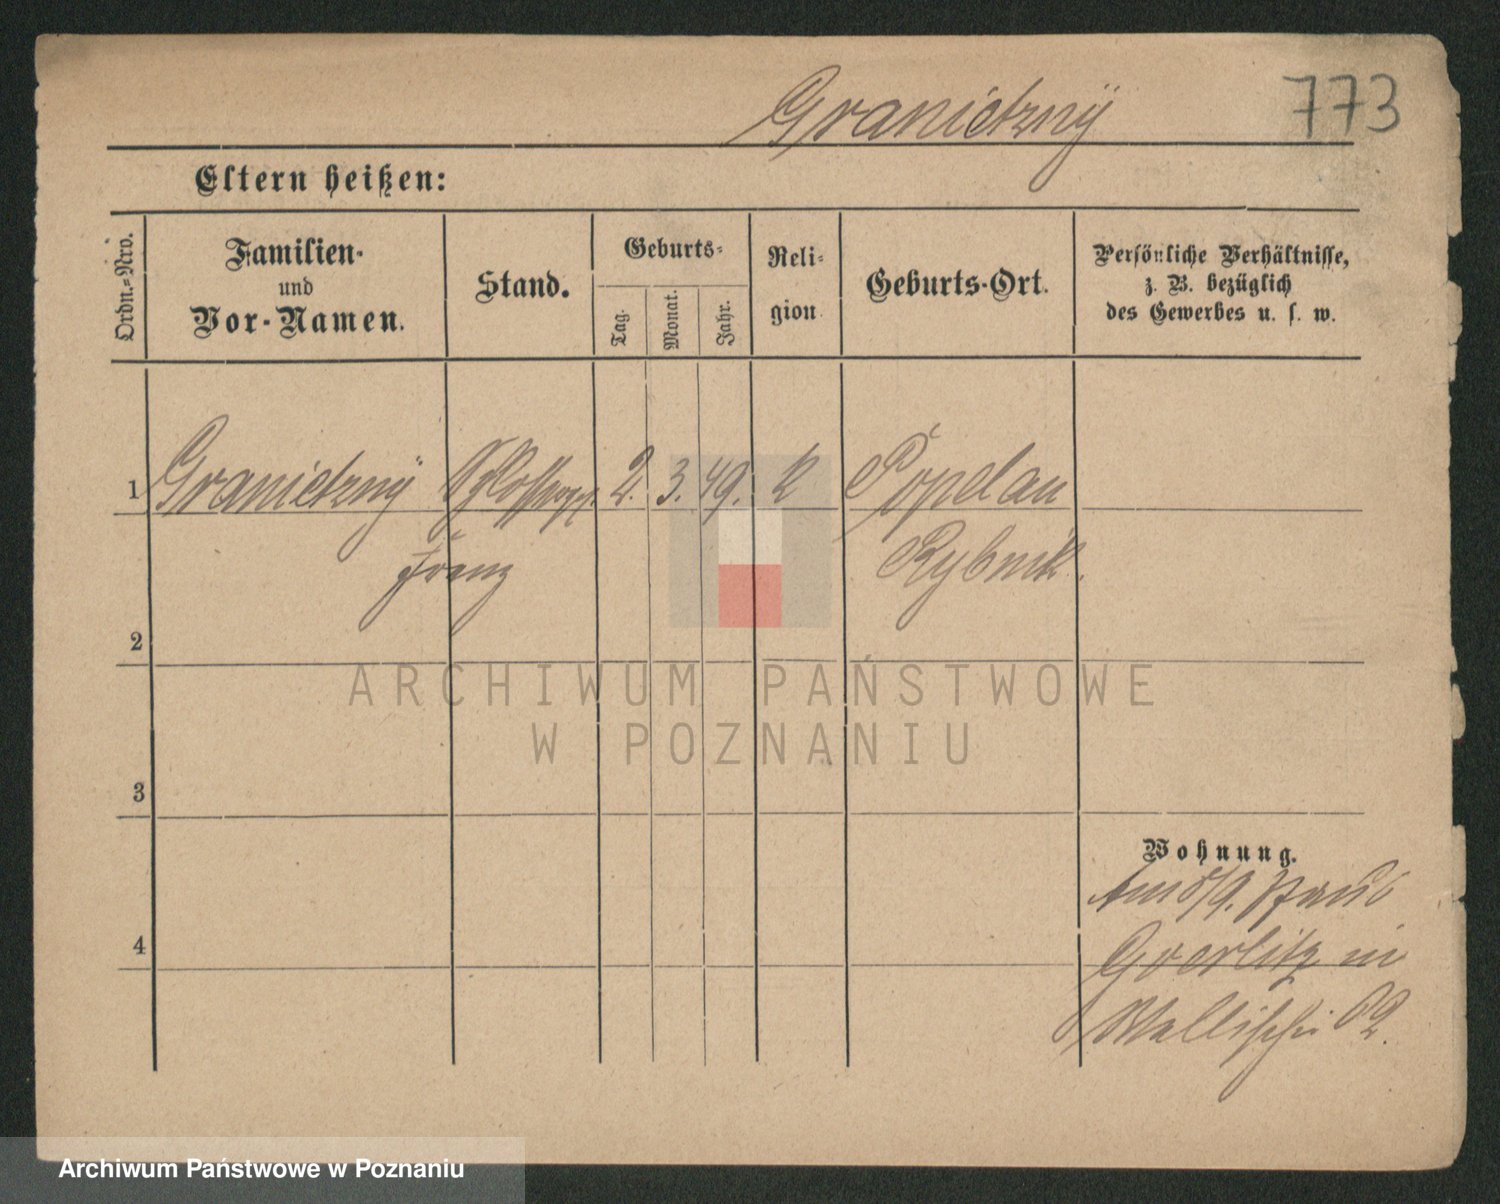 Granietzny 773
Eltern heißen:
Ordn.-Nro.
Familien-
und
Vor-Namen.
Stand.
Geburts-
Tag.
Monat.
Jahr.
Reli-
gion
Geburts-Ort.
Persönliche Verhältnisse,
z. B. bezüglich
des Gewerbes u. s. w.
1 Granietzny 2. 3. 49. k Popelau
Franz Rybnik.
2
ARCHIWUM PAŃSTWOWE
W POZNANIU
3
Wohnung.
4
Goerlitz in
Wallischei 62.
Archiwum Państwowe w Poznaniu